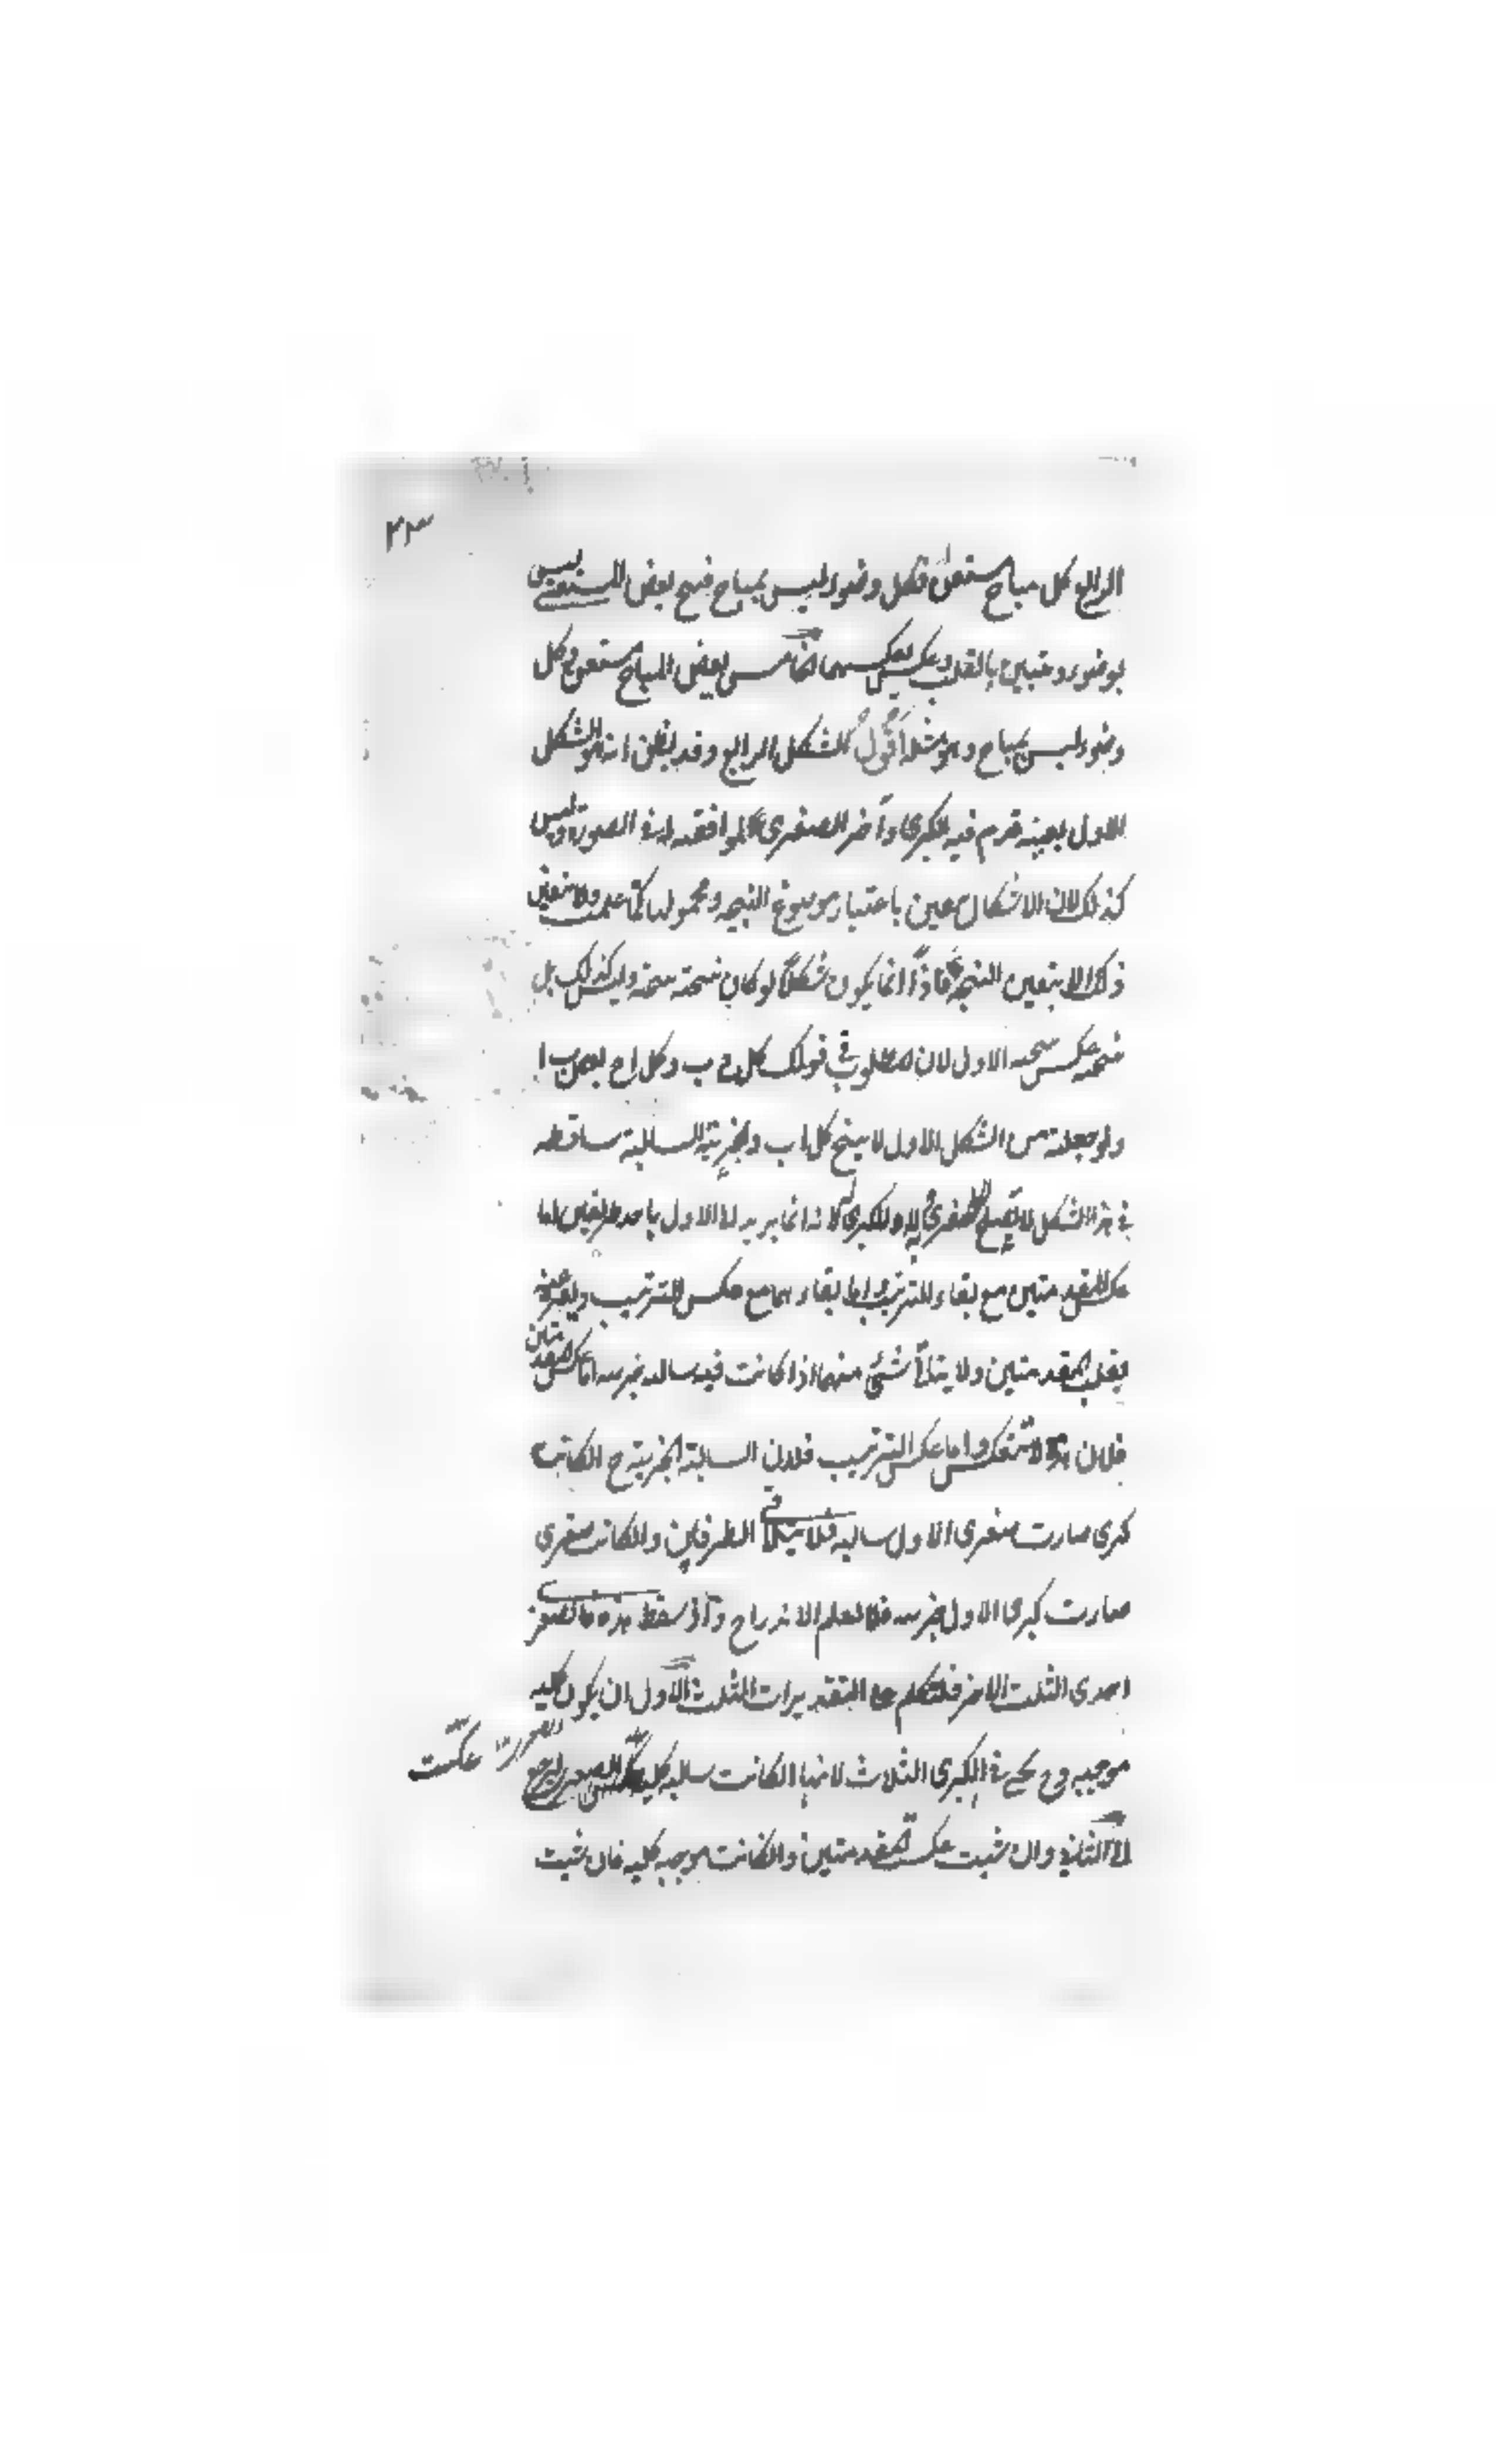 ٢٣
الرابع كل مباح مستغن وكل وضوء ليس بمباح فينتج بعض المستغني ليس
بوضوء وتبين بالقلب وعكس بعكسهما الخامس بعض المباح مستغن وكل
وضوء ليس بمباح وهو مثله أقول الشكل الرابع وقد يظن انه هو الشكل
الاول بعينه قدم فيه الكبرى وأخر الصغرى لموافقته الصورة وليس
كذلك لان الاشكال باعتبار موضوع النتيجة ومحمولها كما علمت ولا يتعين
ذلك الا بتعين النتيجة فاذا انما يكون شكلا لو كان نتيجته وليس كذلك بل
نتيجته عكس نتيجة الاول لان المطلوب في قولك كل ج ب وكل ا ج بعض ب ا
ولو جعلته من الشكل الاول لا ينتج كل ا ب والجزئية السالبة ساقطة
في هذا الشكل لا تصلح للصغرى ولا للكبرى لانه انما يريد الى الاول باحد طريقين اما
عكس المقدمتين مع بقاء الترتيب واما بقاءهما مع عكس الترتيب ويعبر عنه
بقلب المقدمتين ولا يتأتى شئ منهما اذا كانت فيه سالبة جزئية اما عكس المقدمتين
فلان هذه لا تنعكس واما عكس الترتيب فلان السالبة الجزئية ح ان كانت
كبرى صارت صغرى الاول سالبة فلا يتلاقى الطرفان وان كانت صغرى
صارت كبرى الاول جزئية فلا يعلم الاندراج واذ سقط هذه فالصغرى
احدى الثلث الاخر فلنتكلم على التقديرات الثلث الاول ان يكون كلية
موجبة وح يجئ في الكبرى الثلاث لانها ان كانت سالبة كلية عكست الصغرى ليرجع
الى الثاني وان شئت عكس المقدمتين وان كانت موجبة كلية فان شئت